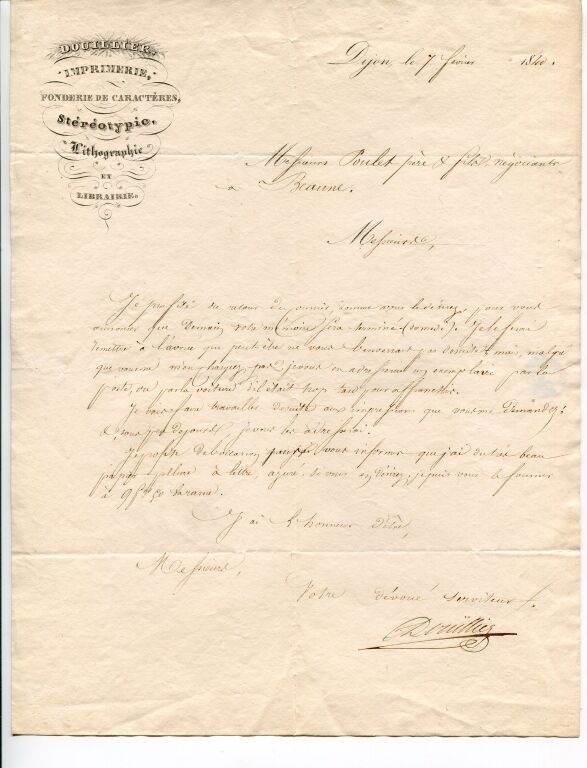 DOUILLIER,
IMPRIMERIE,
FONDERIE DE CARACTÈRES,
Stéréotypie,
Lithographie
ET
LIBRAIRIE.
Dijon, le 7 février 1840.
Messieurs Poulet père & fils, négociants
à Beaune.
Messieurs,
Je profite du retour du commis, comme vous le désirez, pour vous
annoncer que demain votre mémoire sera terminé (samedi). Je le ferai
remettre à l'avoué qui peut être ne vous l'enverrait pas de suite; mais, malgré
que vous ne m'en chargez pas, je vous en adresserai un exemplaire par la
poste, ou par la voiture s'il était trop tard pour affranchir.
Je vais faire travailler de suite aux impressions que vous me demandez;
&, sous peu de jours je vous les adresserai.
Je profite de l'occasion pour vous informer que j'ai du très beau
papier pelure à lettre, azuré, si vous en désirez, je puis vous le fournir
à la rame.
J'ai l'honneur d'être,
Messieurs,
Votre dévoué serviteur.
Douillier